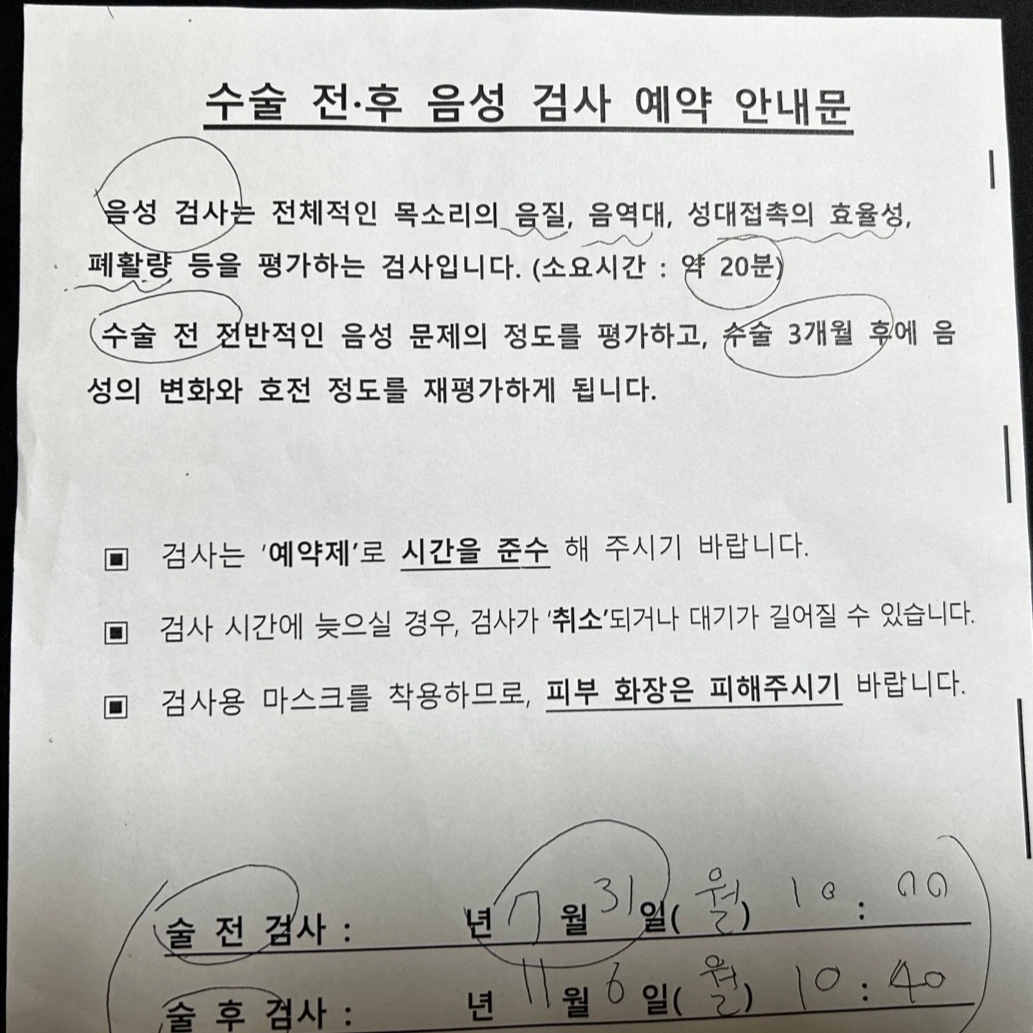 수술 전·후 음성 검사 예약 안내문
음성 검사는 전체적인 목소리의 음질, 음역대, 성대접촉의 효율성,
폐활량 등을 평가하는 검사입니다. (소요시간 : 약 20분)
수술 전 전반적인 음성 문제의 정도를 평가하고, 수술 3개월 후에 음
성의 변화와 호전 정도를 재평가하게 됩니다.
▣ 검사는 '예약제'로 시간을 준수 해 주시기 바랍니다.
▣ 검사 시간에 늦으실 경우, 검사가 '취소'되거나 대기가 길어질 수 있습니다.
▣ 검사용 마스크를 착용하므로, 피부 화장은 피해주시기 바랍니다.
술 전 검사 : 년 7월 31일(월) 10 : 00
술 후 검사 : 년 11월 6일(월) 10 : 40